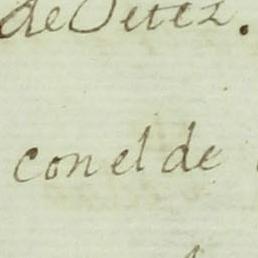 de Velez.
con el de